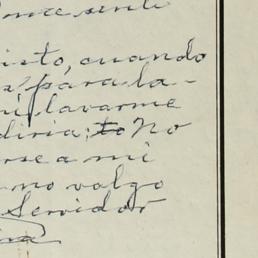 once sente
isto, cuando
para la-
ni lavarme
diria; to No
rse a mi
no valgo
Servidor